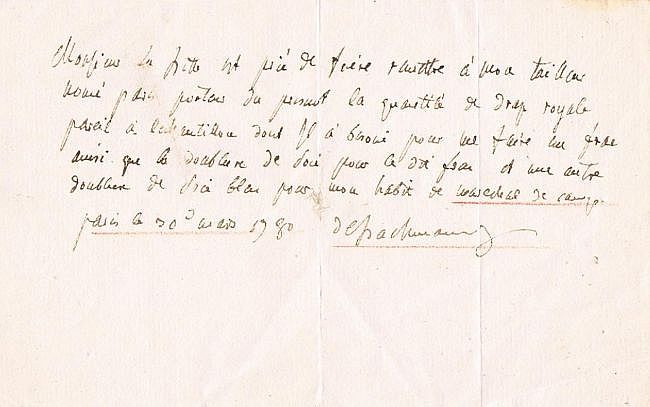 Monsieur est prié de faire remettre à mon tailleur
nomé porteur du present la quantité de drap royale
pareil à l'echantillon dont il à besoin pour me faire un frac
ainsi que la doublure de soi pour le dit frac et une autre
doublure de soi blan pour mon habit de marechal de camp
paris le 30 mars 1780